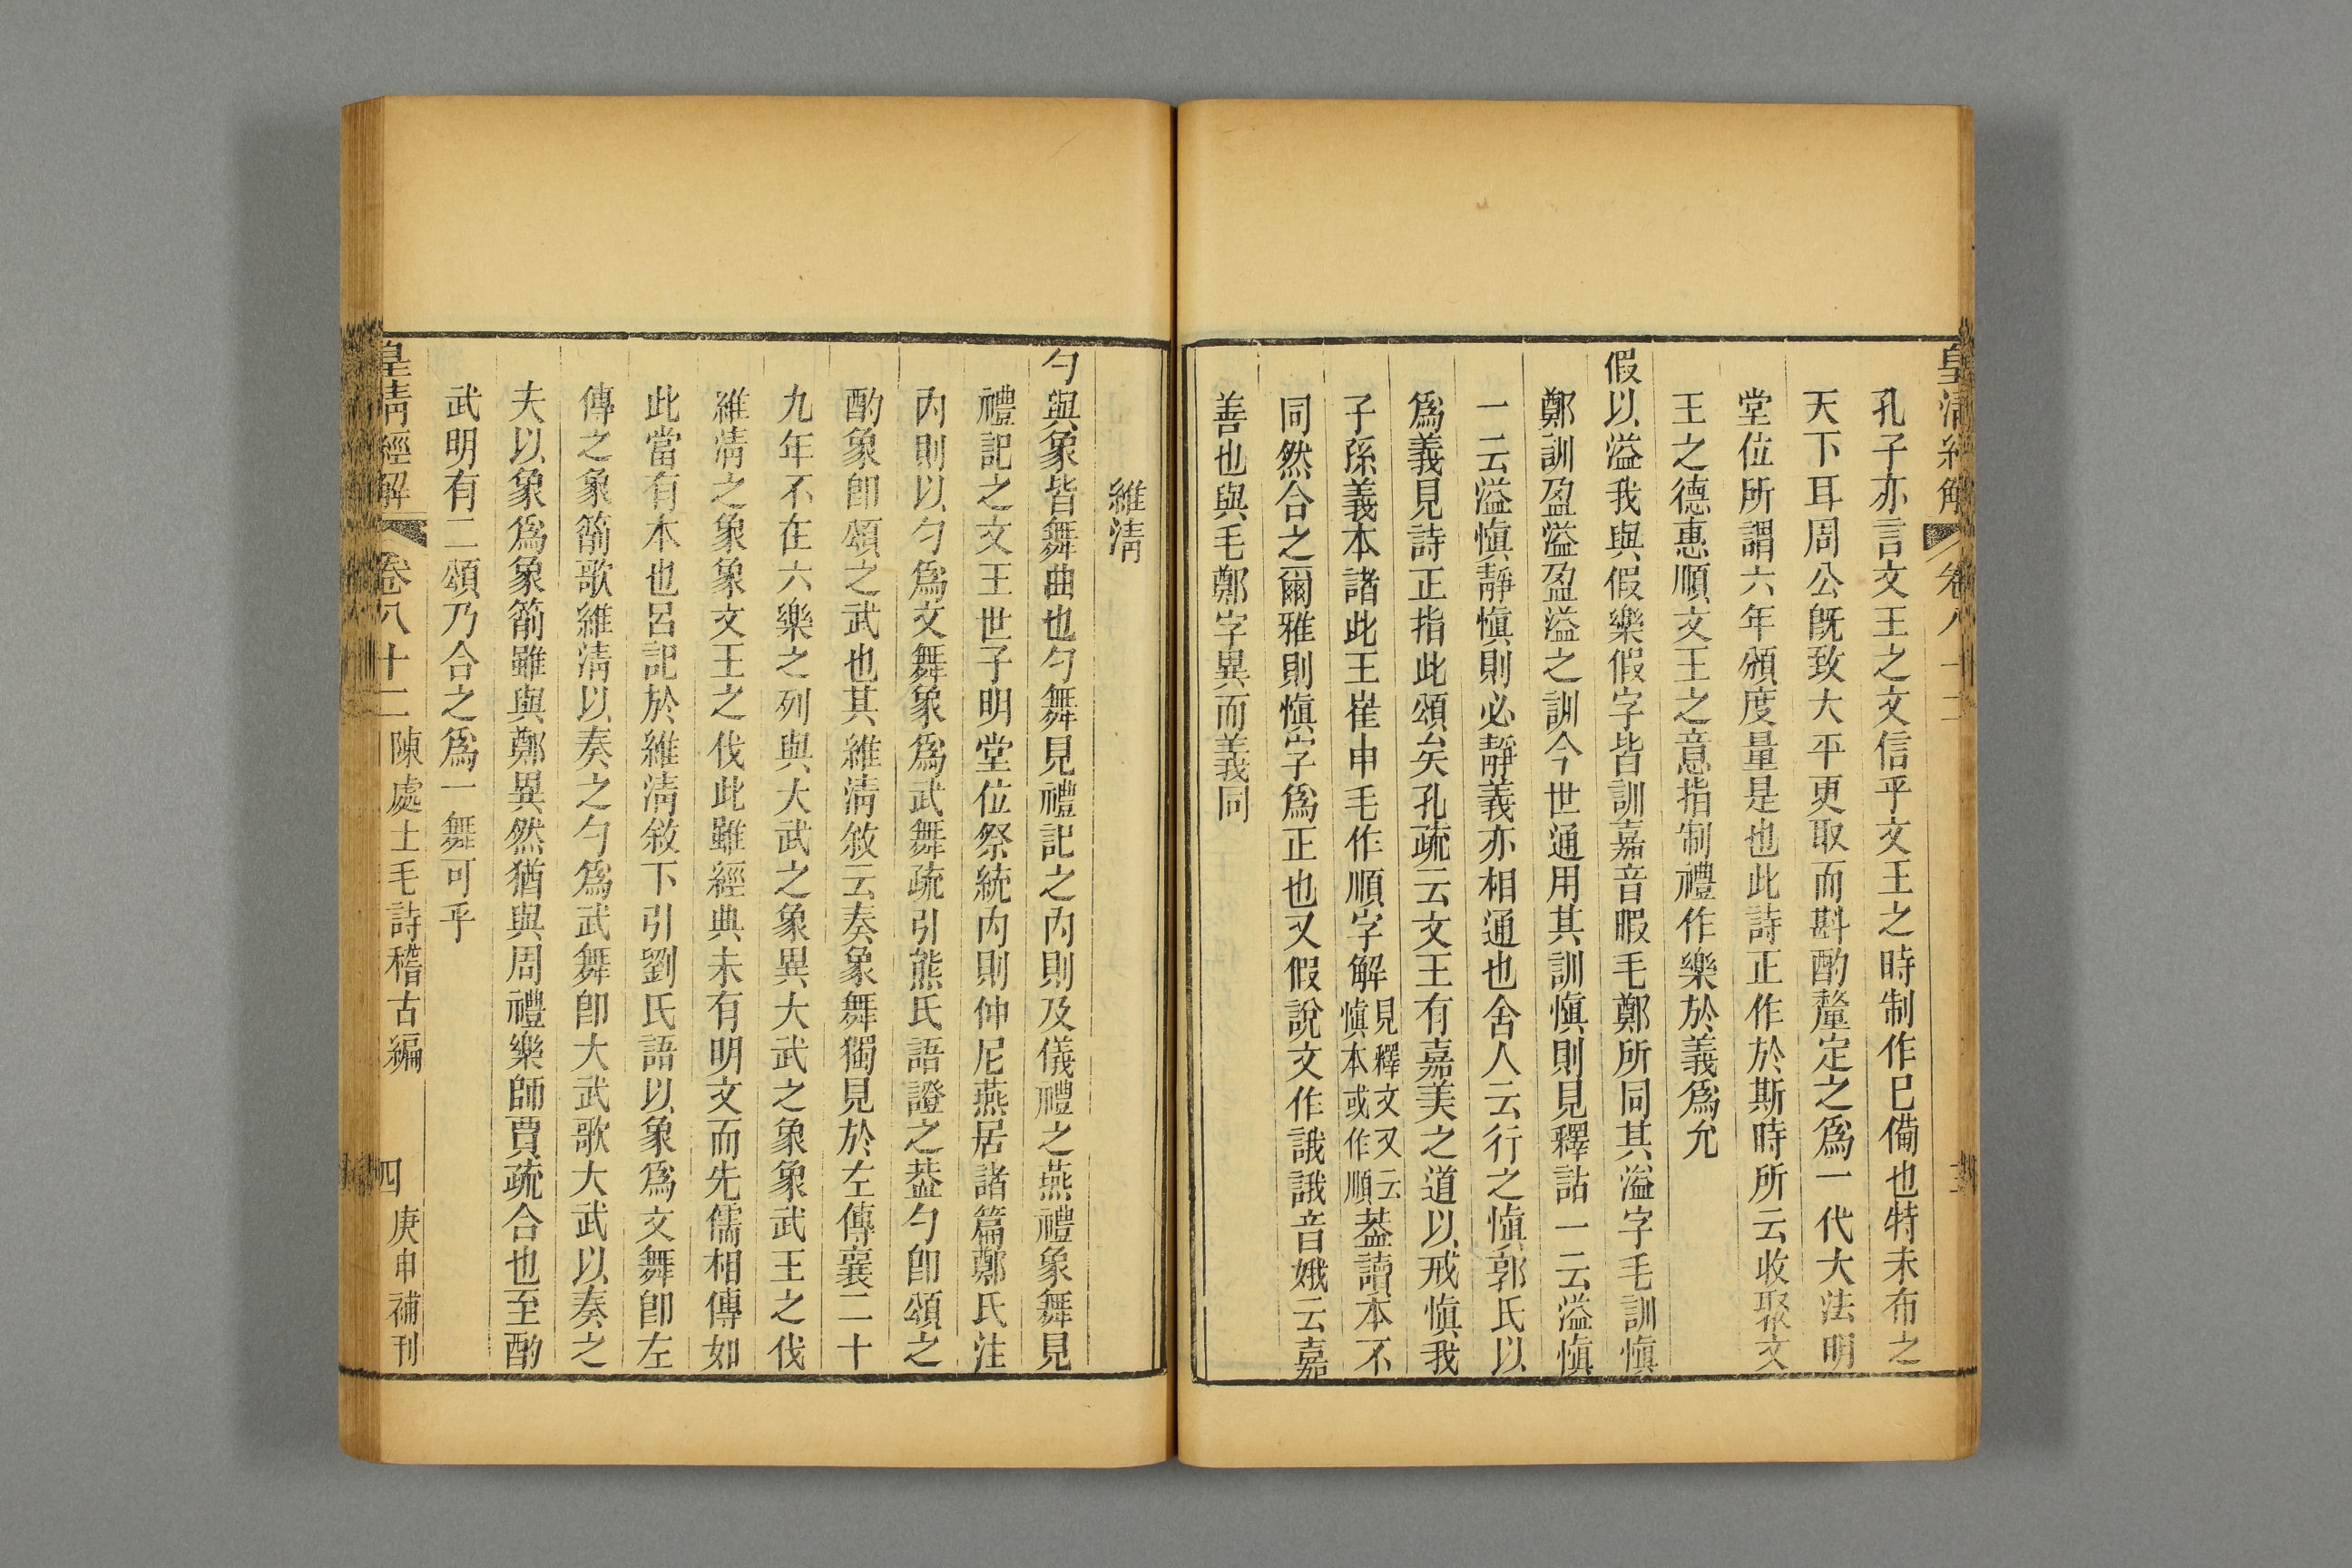 孔子亦言文王之文信乎文王之時制作已備也特未布之
天下耳周公既致大平更取而斟酌釐定之爲一代大法明
堂位所謂六年頒度量是也此詩正作於斯時所云收聚文
王之德惠順文王之意指制禮作樂於義爲允
假以溢我與假樂假字皆訓嘉音暇毛鄭所同其溢字毛訓愼
鄭訓盈溢盈溢之訓今世通用其訓愼則見釋詁一云溢愼
一云溢愼靜愼則必靜義亦相通也舍人云行之愼郭氏以
爲義見詩正指此頌矣孔疏云文王有嘉美之道以戒愼我
子孫義本諸此王崔申毛作順字解見釋文又云愼本或作順葢讀本不
同然合之爾雅則愼字爲正也又假說文作誐誐音娥云嘉
善也與毛鄭字異而義同
維淸
勺與象皆舞曲也勺舞見禮記之內則及儀禮之燕禮象舞見
禮記之文王世子明堂位祭統內則仲尼燕居諸篇鄭氏注
內則以勺爲文舞象爲武舞疏引熊氏語證之葢勺卽頌之
酌象卽頌之武也其維淸敘云奏象舞獨見於左傳襄二十
九年不在六樂之列與大武之象異大武之象象武王之伐
維淸之象象文王之伐此雖經典未有明文而先儒相傳如
此當有本也呂記於維淸敘下引劉氏語以象爲文舞卽左
傳之象箾歌維淸以奏之勺爲武舞卽大武歌大武以奏之
夫以象爲象箾雖與鄭異然猶與周禮樂師賈疏合也至酌
武明有二頌乃合之爲一舞可乎
皇淸經解 卷八十二 陳處士毛詩稽古編 四 庚申補刊